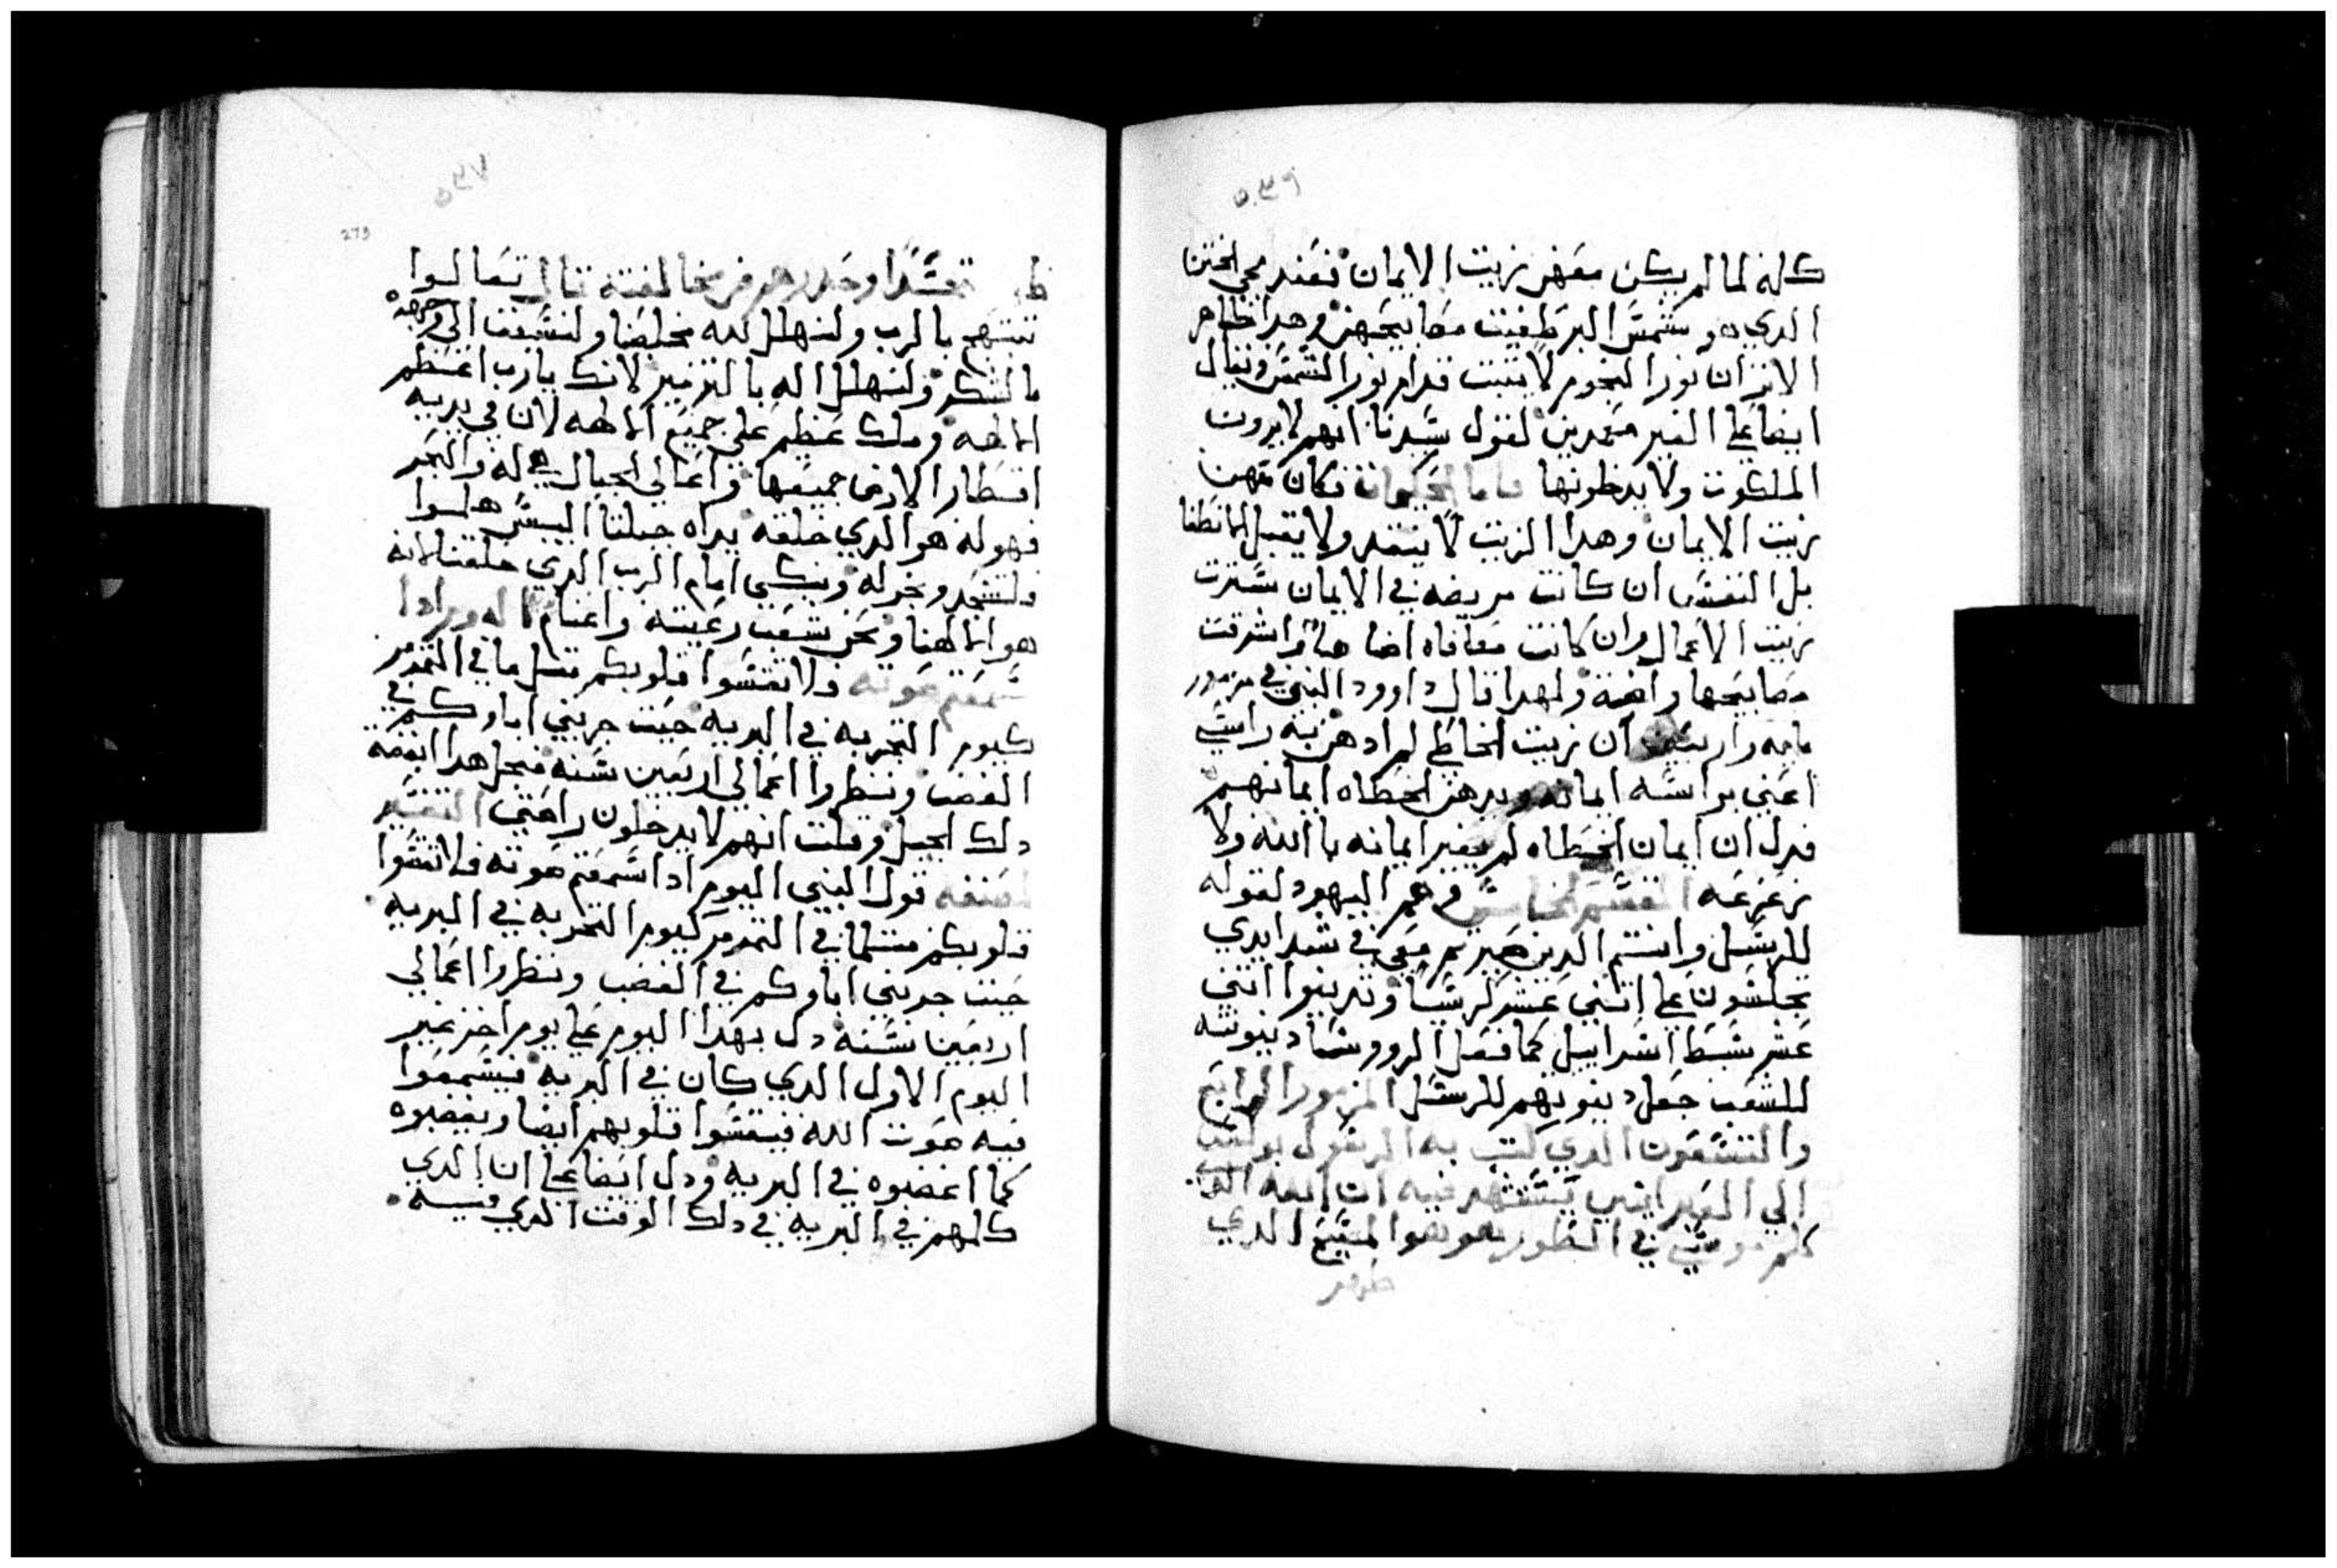 ٥٣٩
كلهن لما لم يكن معهن زيت الايمان فعند مجي الختن
الدي هو شمش البر طفيت مصابيحهن وهدا ظاهر
الان ان نور النجوم لا يتبت قدام نور الشمش ويقال
ايضا على الغير معمدين لقول شيدنا انهم لا يرون
الملكوت ولا يدخلونها فاما الحكيمات فكان معهن
زيت الايمان وهدا الزيت لا ينفد ولا يقبل الانطفا
بل النفس ان كانت مريضه في الايمان شترت
زيت الاعمال وان كانت معافاه اضا ضاوا شرقت
مصابيحها واضية ولهدا قال داوود النبي في مزمور
مايه واربعين ان زيت الخاطي لم ادهن به راشي
اعني بواشه ايمانه وبدهن الخطاه ايمانهم
فدل ان ايمان الخطاه لم يغير ايمانه باالله ولا
زعزعه القشم الخامش في عمر اليهود لقوله
للرشل وانتم الدين صبرتم معي في شدايدي
تجلشون على اتني عشر كرشيا وتدينوا اتني
عشر شبط اشراييل كما فعل الرووشا دينونته
للشعب جعل دينونهم للرشل المزمور الرابع
والتشعون الدي كتب به الرشول بولش
الي العبرانيين يشتشهد فيه ان الله الدي
كلم موشي في الطور هو هو المشيح الدي
ظهر
٥٣٧
273
تجشدا وحدرهم من مخالفته قال تعالوا
نبتهج بالرب ولنهلل لله مخلصنا ولنشبقت الى وجهه
بالشكر ولنهلل اله بالتزمير لانك يارب اعظم
الالهه وملك عظيم على جميع الالهه لان في يديه
اقطار الارض جميعها واعالي الجبال هي له والبحر
فهو له هو الدي خلقه يداه جبلتا اليبش هلموا
فلنشجد ونخر له ونبكي امام الرب الدي خلقنا لانه
هو الاهنا ونحن شعب رعيته واغنام اله ومرادا
شمعتم صوته فلا تقشوا قلوبكم متل ما في التمرمر
كيوم التجربه في البريه حيت جربني اباوكم في
الغضب ونظروا اعمالي اربعين شنه فبحل هدا ابغضه
دلك الجيل وقلت انهم لا يدخلون راحتي التفشير
لمصنفه قول النبي اليوم ادا شمعتم صوته فلا تقشوا
قلوبكم متلما في التمرمر كيوم التجربه في البريه
حيت جربني اباوكم في الغضب ونظروا اعمالي
اربعين شنه دل بهدا اليوم على يوم اخر غير
اليوم الاول الدي كان في البريه فيشمعوا
فيه صوت الله فيقشوا قلوبهم ايضا ويغضبوه
كما اغضبوه في البريه ودل ايضا على ان الدي
كلمهم في البريه في دلك الوقت الدي فيه